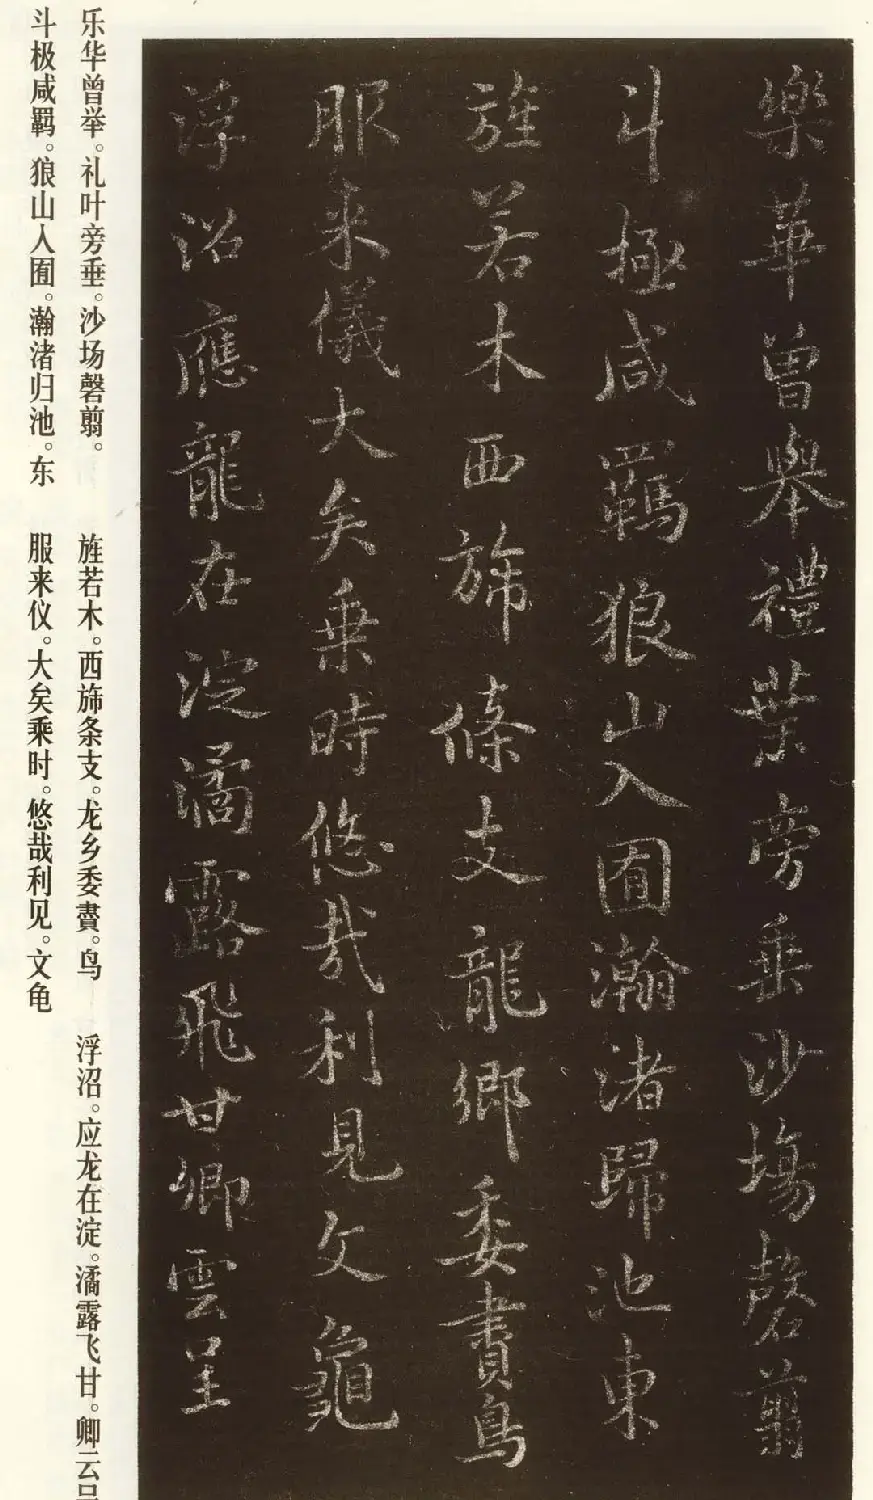 樂華曾舉禮葉旁垂沙場磬翦
斗極咸羈狼山入囿瀚渚歸池東
旌若木西旆條支龍鄉委賮鳥
服来儀大矣乗時悠哉利見文龜
浮沼應龍在淀潏露飛甘卿雲呈
乐华曾举。礼叶旁垂。沙场磬翦。
斗极咸羁。狼山入囿。瀚渚归池。东
旌若木。西旆条支。龙乡委賮。鸟
服来仪。大矣乘时。悠哉利见。文龟
浮沼。应龙在淀。潏露飞甘。卿云呈